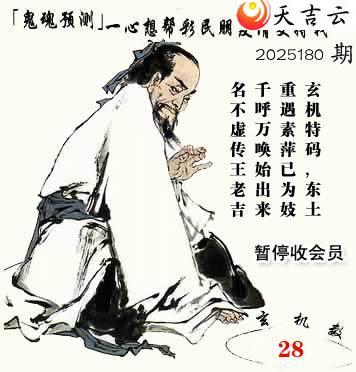 天吉云
「鬼魂预测」一心想帮彩民朋友
2025180 期
玄机特码，东土
重遇素萍已为妓
千呼万唤始出来
名不虚传王老吉
暂停收会员
玄机数
28